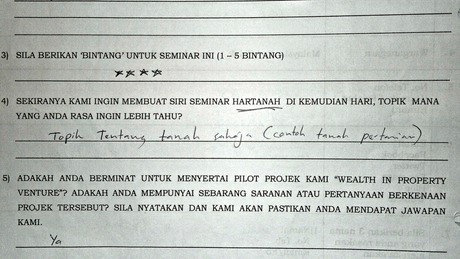 3) SILA BERIKAN 'BINTANG' UNTUK SEMINAR INI (1 – 5 BINTANG)
★★★★
4) SEKIRANYA KAMI INGIN MEMBUAT SIRI SEMINAR HARTANAH DI KEMUDIAN HARI, TOPIK MANA
YANG ANDA RASA INGIN LEBIH TAHU?
Topik Tentang tanah sahaja (contoh tanah pertanian)
5) ADAKAH ANDA BERMINAT UNTUK MENYERTAI PILOT PROJEK KAMI "WEALTH IN PROPERTY
VENTURE"? ADAKAH ANDA MEMPUNYAI SEBARANG SARANAN ATAU PERTANYAAN BERKENAAN
PROJEK TERSEBUT? SILA NYATAKAN DAN KAMI AKAN PASTIKAN ANDA MENDAPAT JAWAPAN
KAMI.
Ya